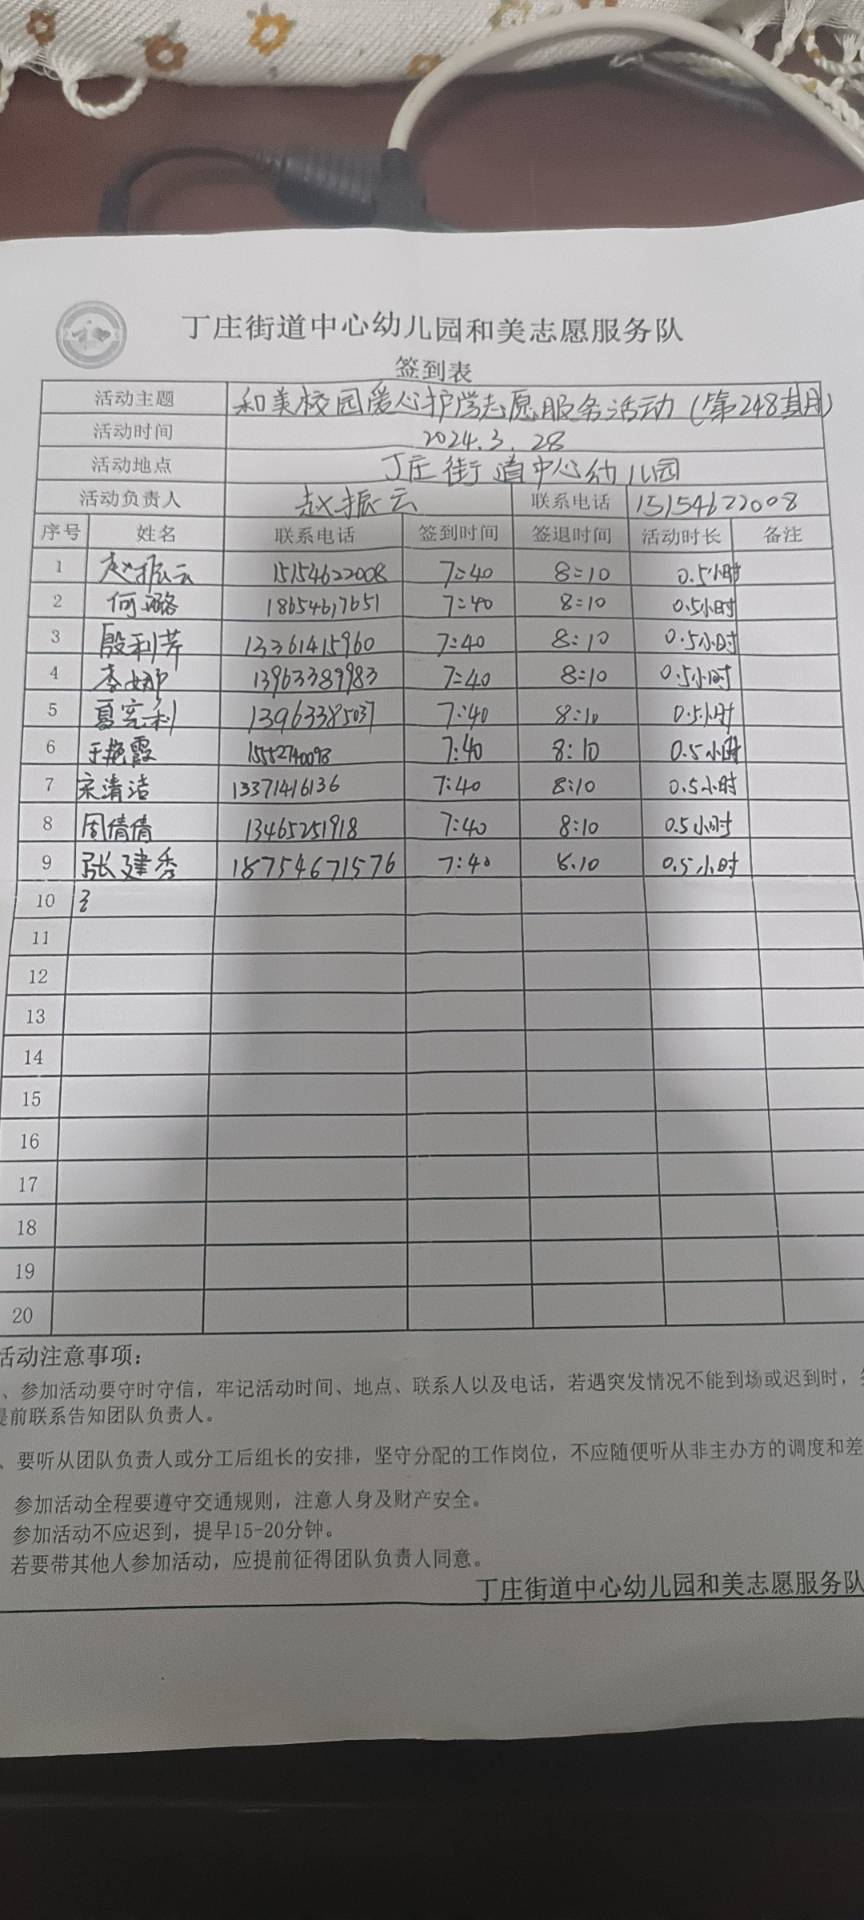 丁庄街道中心幼儿园和美志愿服务队
签到表
活动主题 和美校园爱心护学志愿服务活动（第248期）
活动时间 2024.3.28
活动地点 丁庄街道中心幼儿园
活动负责人 赵振云 联系电话 15154622008
序号 姓名 联系电话 签到时间 签退时间 活动时长 备注
1 赵振云 15154622008 7:40 8:10 0.5小时
2 何璐 18654617651 7:40 8:10 0.5小时
3 殷利芳 13361415960 7:40 8:10 0.5小时
4 李娜 13963389983 7:40 8:10 0.5小时
5 夏宪利 13963385037 7:40 8:10 0.5小时
6 于艳霞 15552740098 7:40 8:10 0.5小时
7 宋清洁 13371416136 7:40 8:10 0.5小时
8 周倩倩 13465251918 7:40 8:10 0.5小时
9 张建秀 18754671576 7:40 8.10 0.5小时
10
11
12
13
14
15
16
17
18
19
20
活动注意事项：
、参加活动要守时守信，牢记活动时间、地点、联系人以及电话，若遇突发情况不能到场或迟到时，
提前联系告知团队负责人。
、要听从团队负责人或分工后组长的安排，坚守分配的工作岗位，不应随便听从非主办方的调度和差
参加活动全程要遵守交通规则，注意人身及财产安全。
参加活动不应迟到，提早15-20分钟。
若要带其他人参加活动，应提前征得团队负责人同意。
丁庄街道中心幼儿园和美志愿服务队